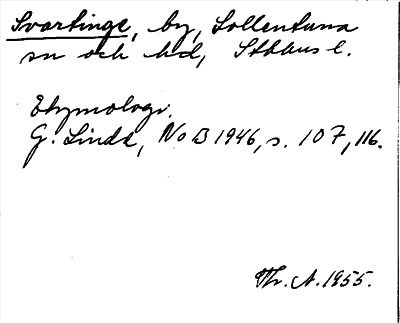 Svartinge, by, Sollentuna
sn och hd, Sthlms l.
Etymologi.
G. Linde, NoB 1946, s. 107, 116.
Thr. A. 1955.